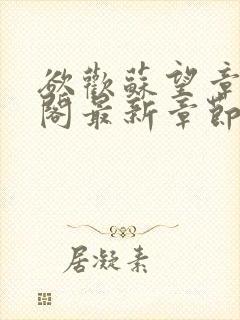 欲歡蘇望章
閣最新章節
居凝素